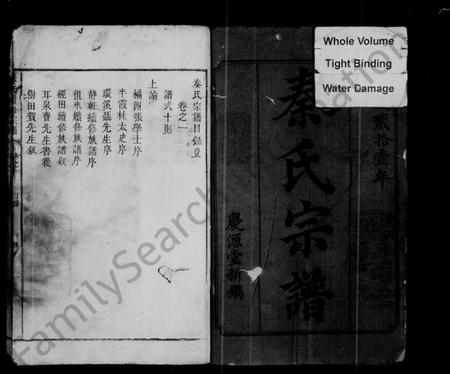 Whole Volume
Tight Binding
Water Damage
貳拾壹年
秦氏宗譜
慶源堂新編
秦氏宗譜目錄
卷之一
譜式十則
上諭
橘洲張學士序
半霞林太史序
環溪聶先生序
靜軒續修族譜序
徂來續修族譜序
經田續修族譜敘
耳泉曹先生書後
對田賀先生敘
FamilySearch